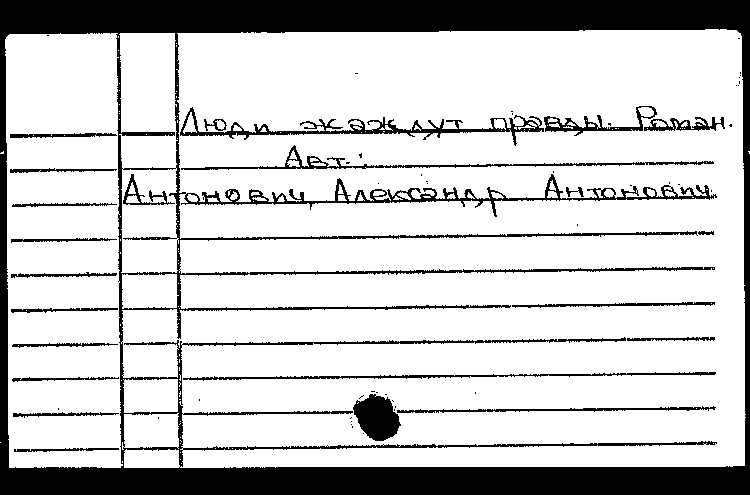 Люди жаждут правды. Роман.
Авт.:
Антонович, Александр Антонович.